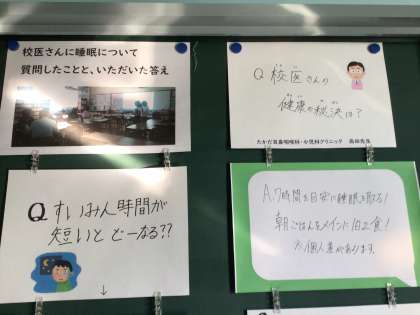 校医さんに睡眠について
質問したことと、いただいた答え
Q 校医さんの
健康の秘決は?
たかだ耳鼻咽喉科・小児科クリニック 高田先生
Q すいみん時間が
短いと どーなる??
↓
A.7時間を目安に睡眠を取る!
朝ごはんをメインに1日2食!
※個人差があります。